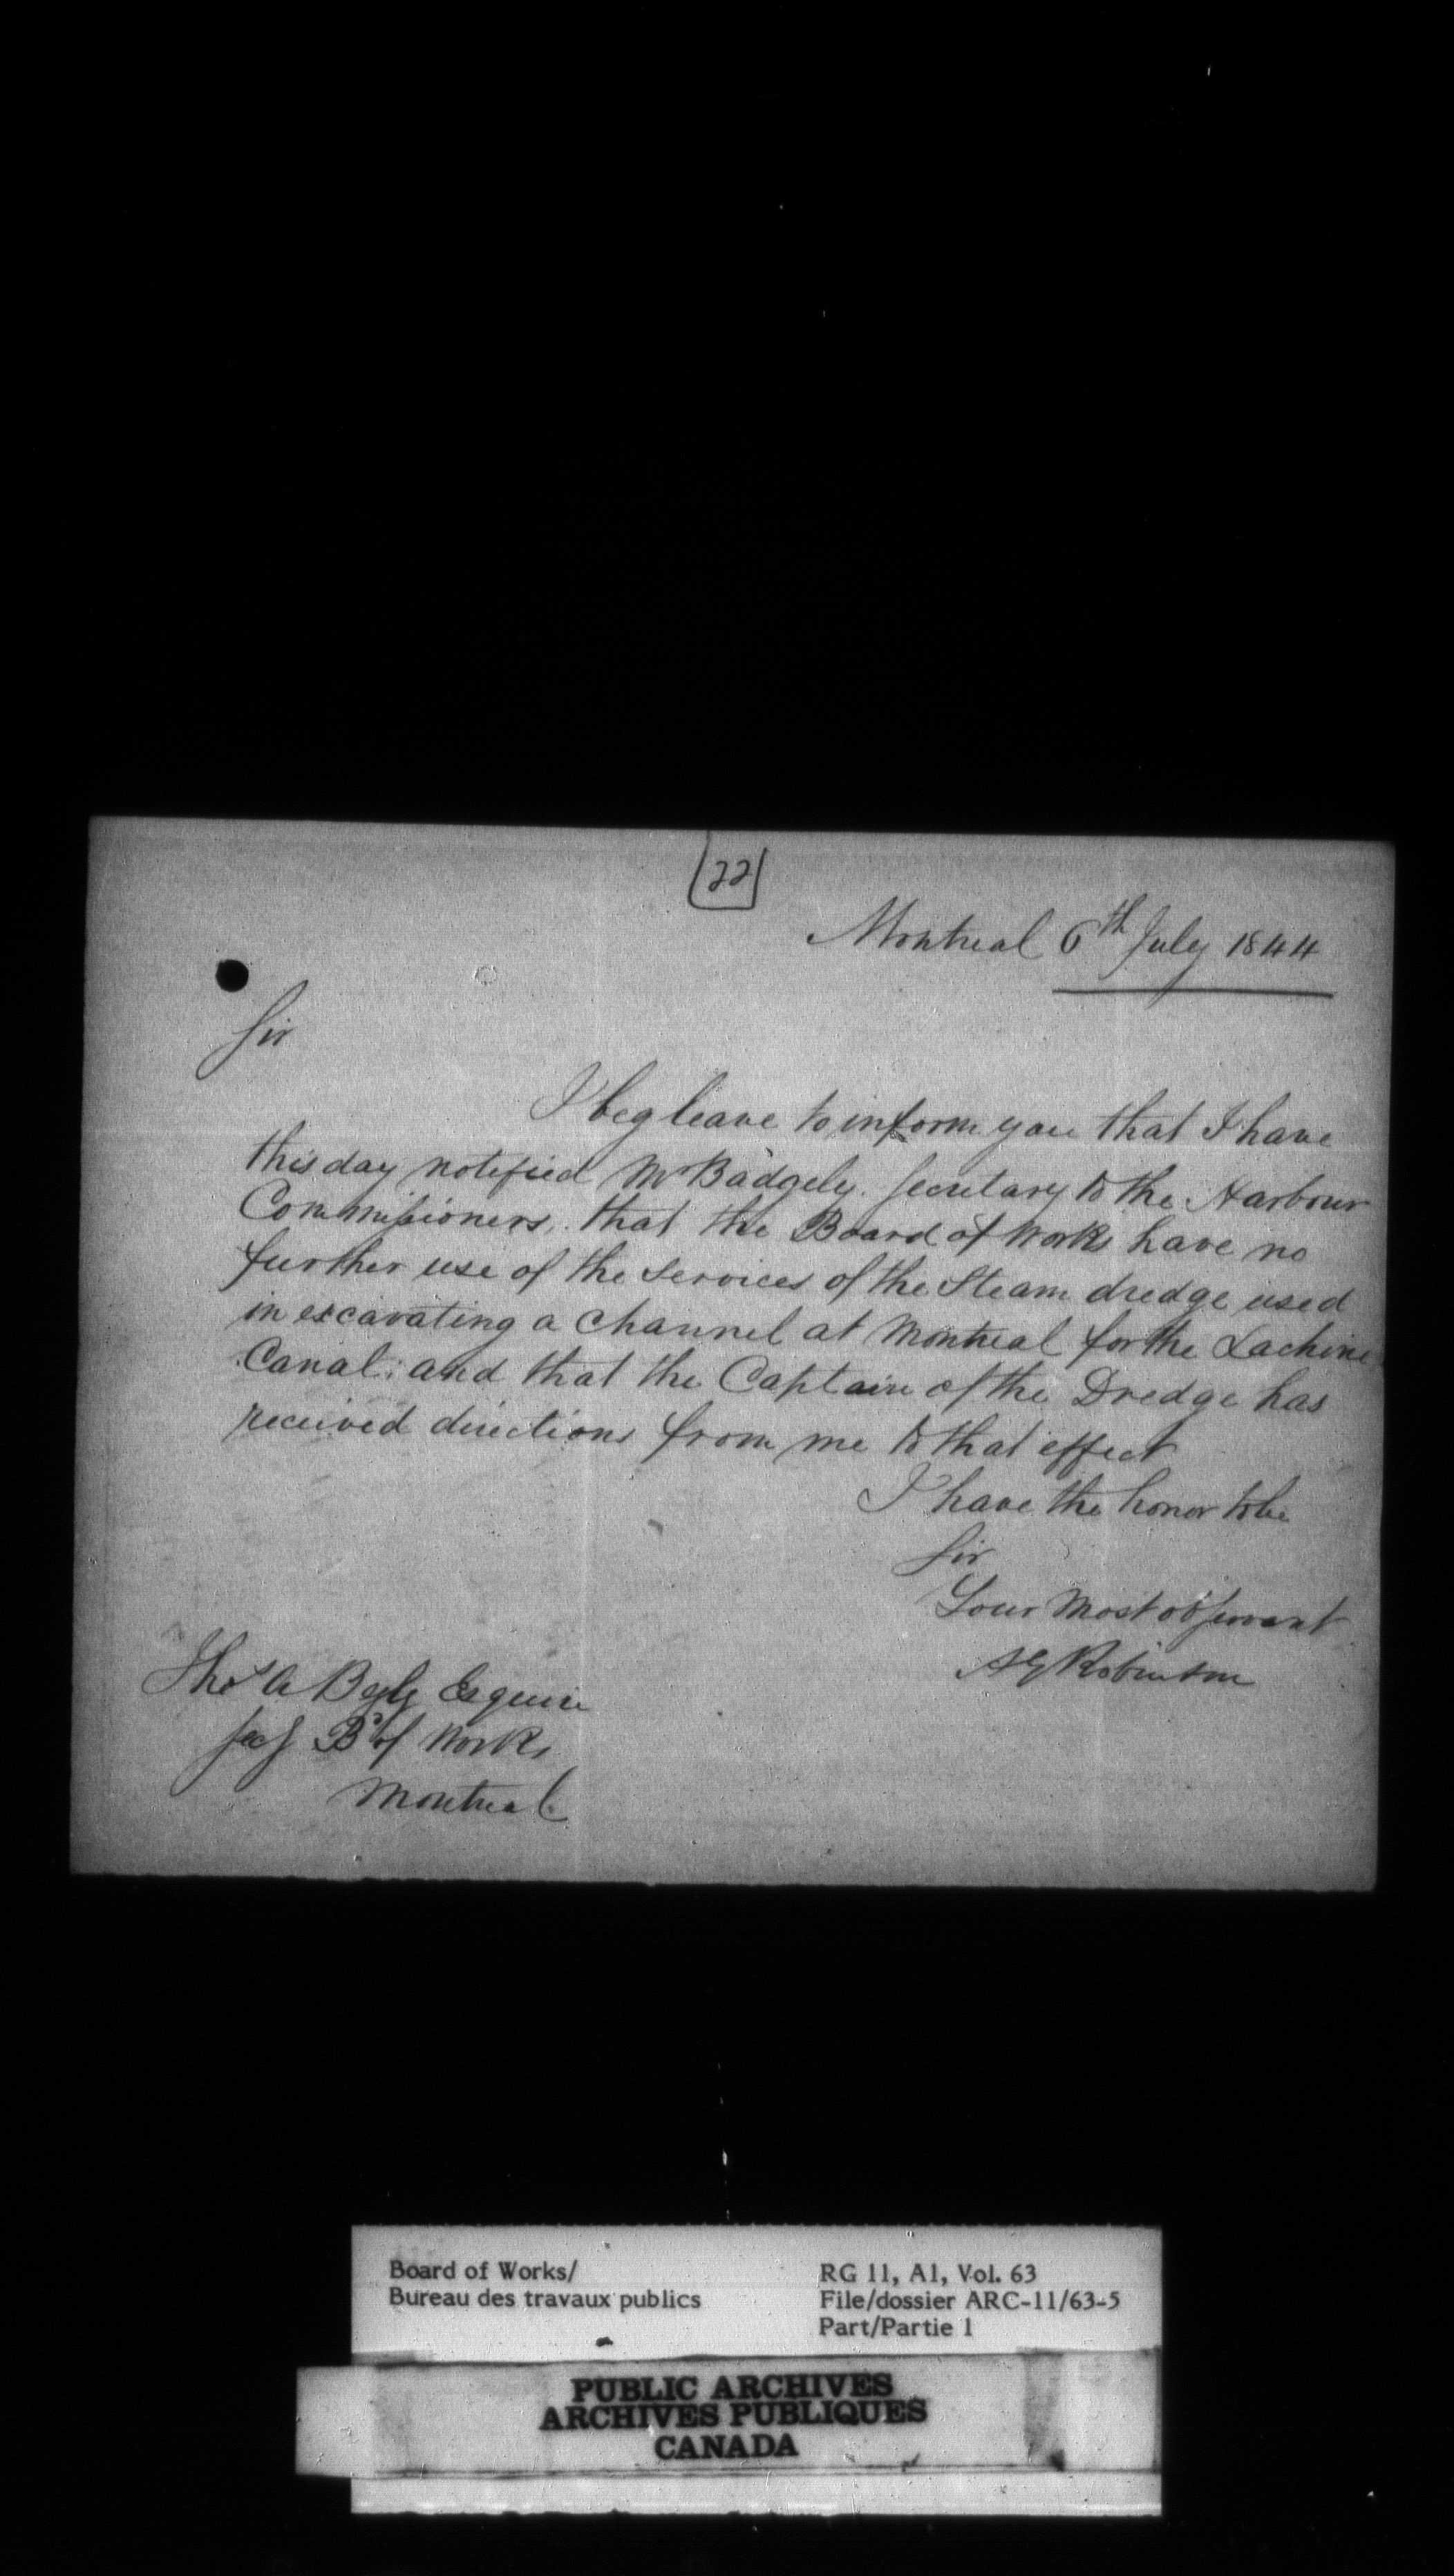 22
Montreal 6th July 1844
Sir
I beg leave to inform you that I have
this day notified Mr Badgely. Secretary to the Harbour
Commissioners, that the Board of Works have no
further use of the Services of the Steam dredge used
in excavating a Channel at Montreal for the Lachine
Canal: and that the Captain of the Dredge has
received directions from me to that effect
I have the honor to be
Sir
Your Most ob Servant
AG Robinson
Thos A Begly Esquire
Secy Bd of Works
Montreal
Board of Works/
Bureau des travaux publics
RG 11, A1, Vol. 63
File/dossier ARC-11/63-5
Part/Partie 1
PUBLIC ARCHIVES
ARCHIVES PUBLIQUES
CANADA